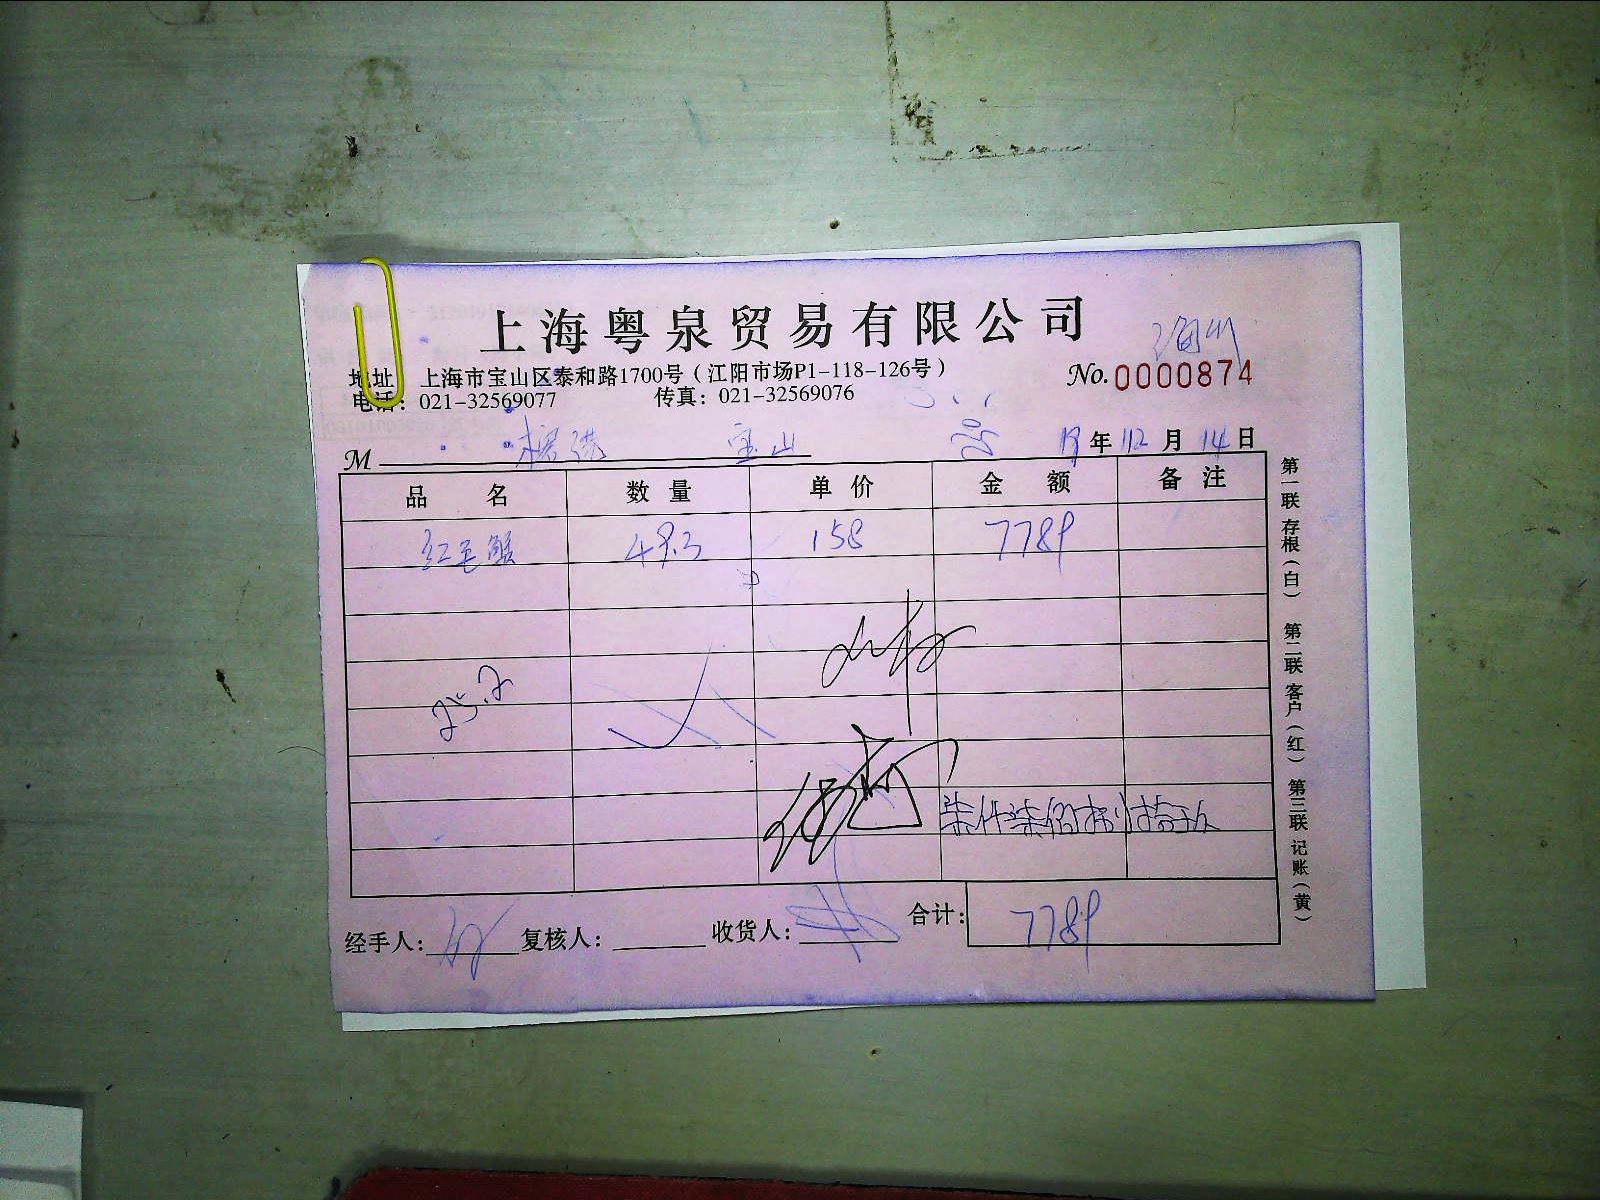 上海粤泉贸易有限公司
地址 上海市宝山区泰和路1700号（江阳市场P1-118-126号）
No.0000874
电话：021-32569077 传真：021-32569076
M 宝山 19年12月14日
品名 数量 单价 金额 备注
红毛蟹 49.3 158 7789
合计：7789
经手人： 复核人： 收货人：
第一联存根（白） 第二联客户（红） 第三联记账（黄）